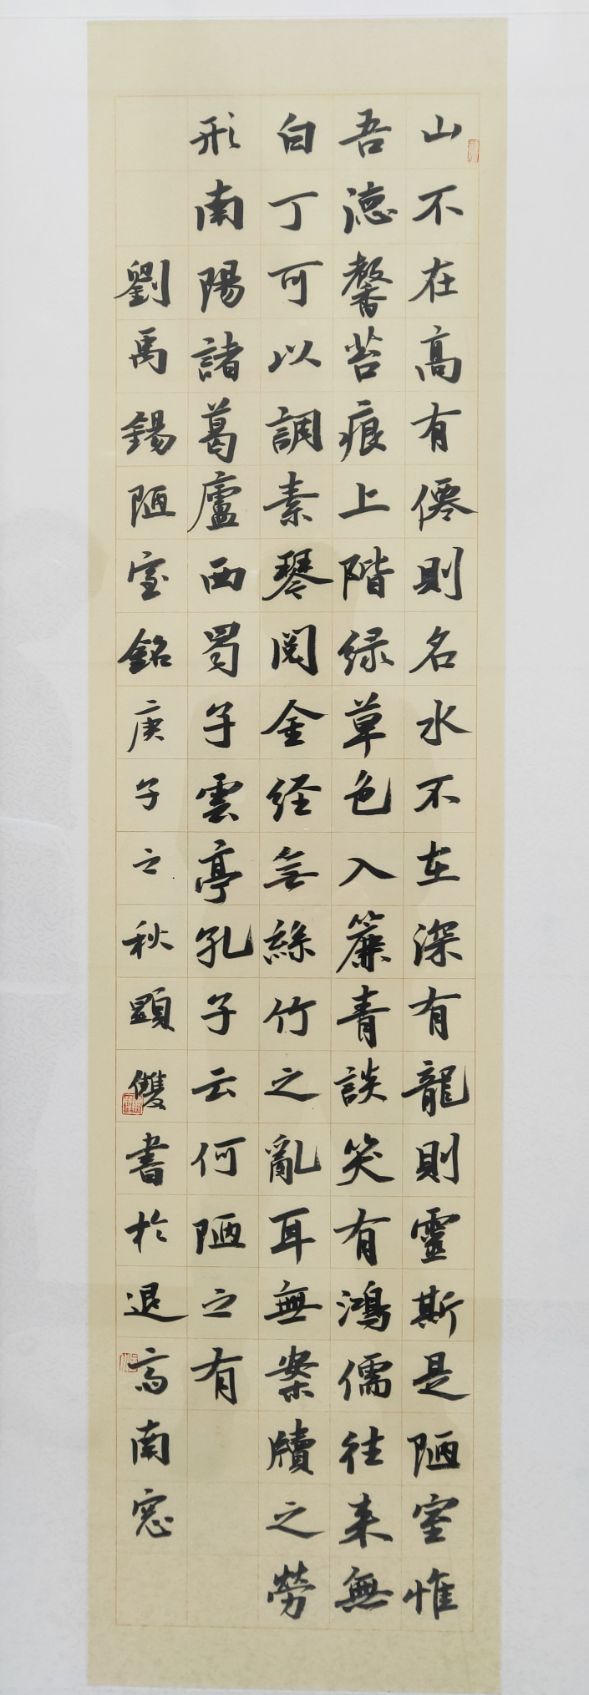 山不在高有僊則名水不在深有龍則靈斯是陋室惟
吾德馨苔痕上階绿草色入簾青談笑有鴻儒往来無
白丁可以調素琴閲金经無絲竹之亂耳無案牘之勞
形南陽諸葛廬西蜀子雲亭孔子云何陋之有
劉禹錫陋室銘庚子之秋顕雙書於退高南窓